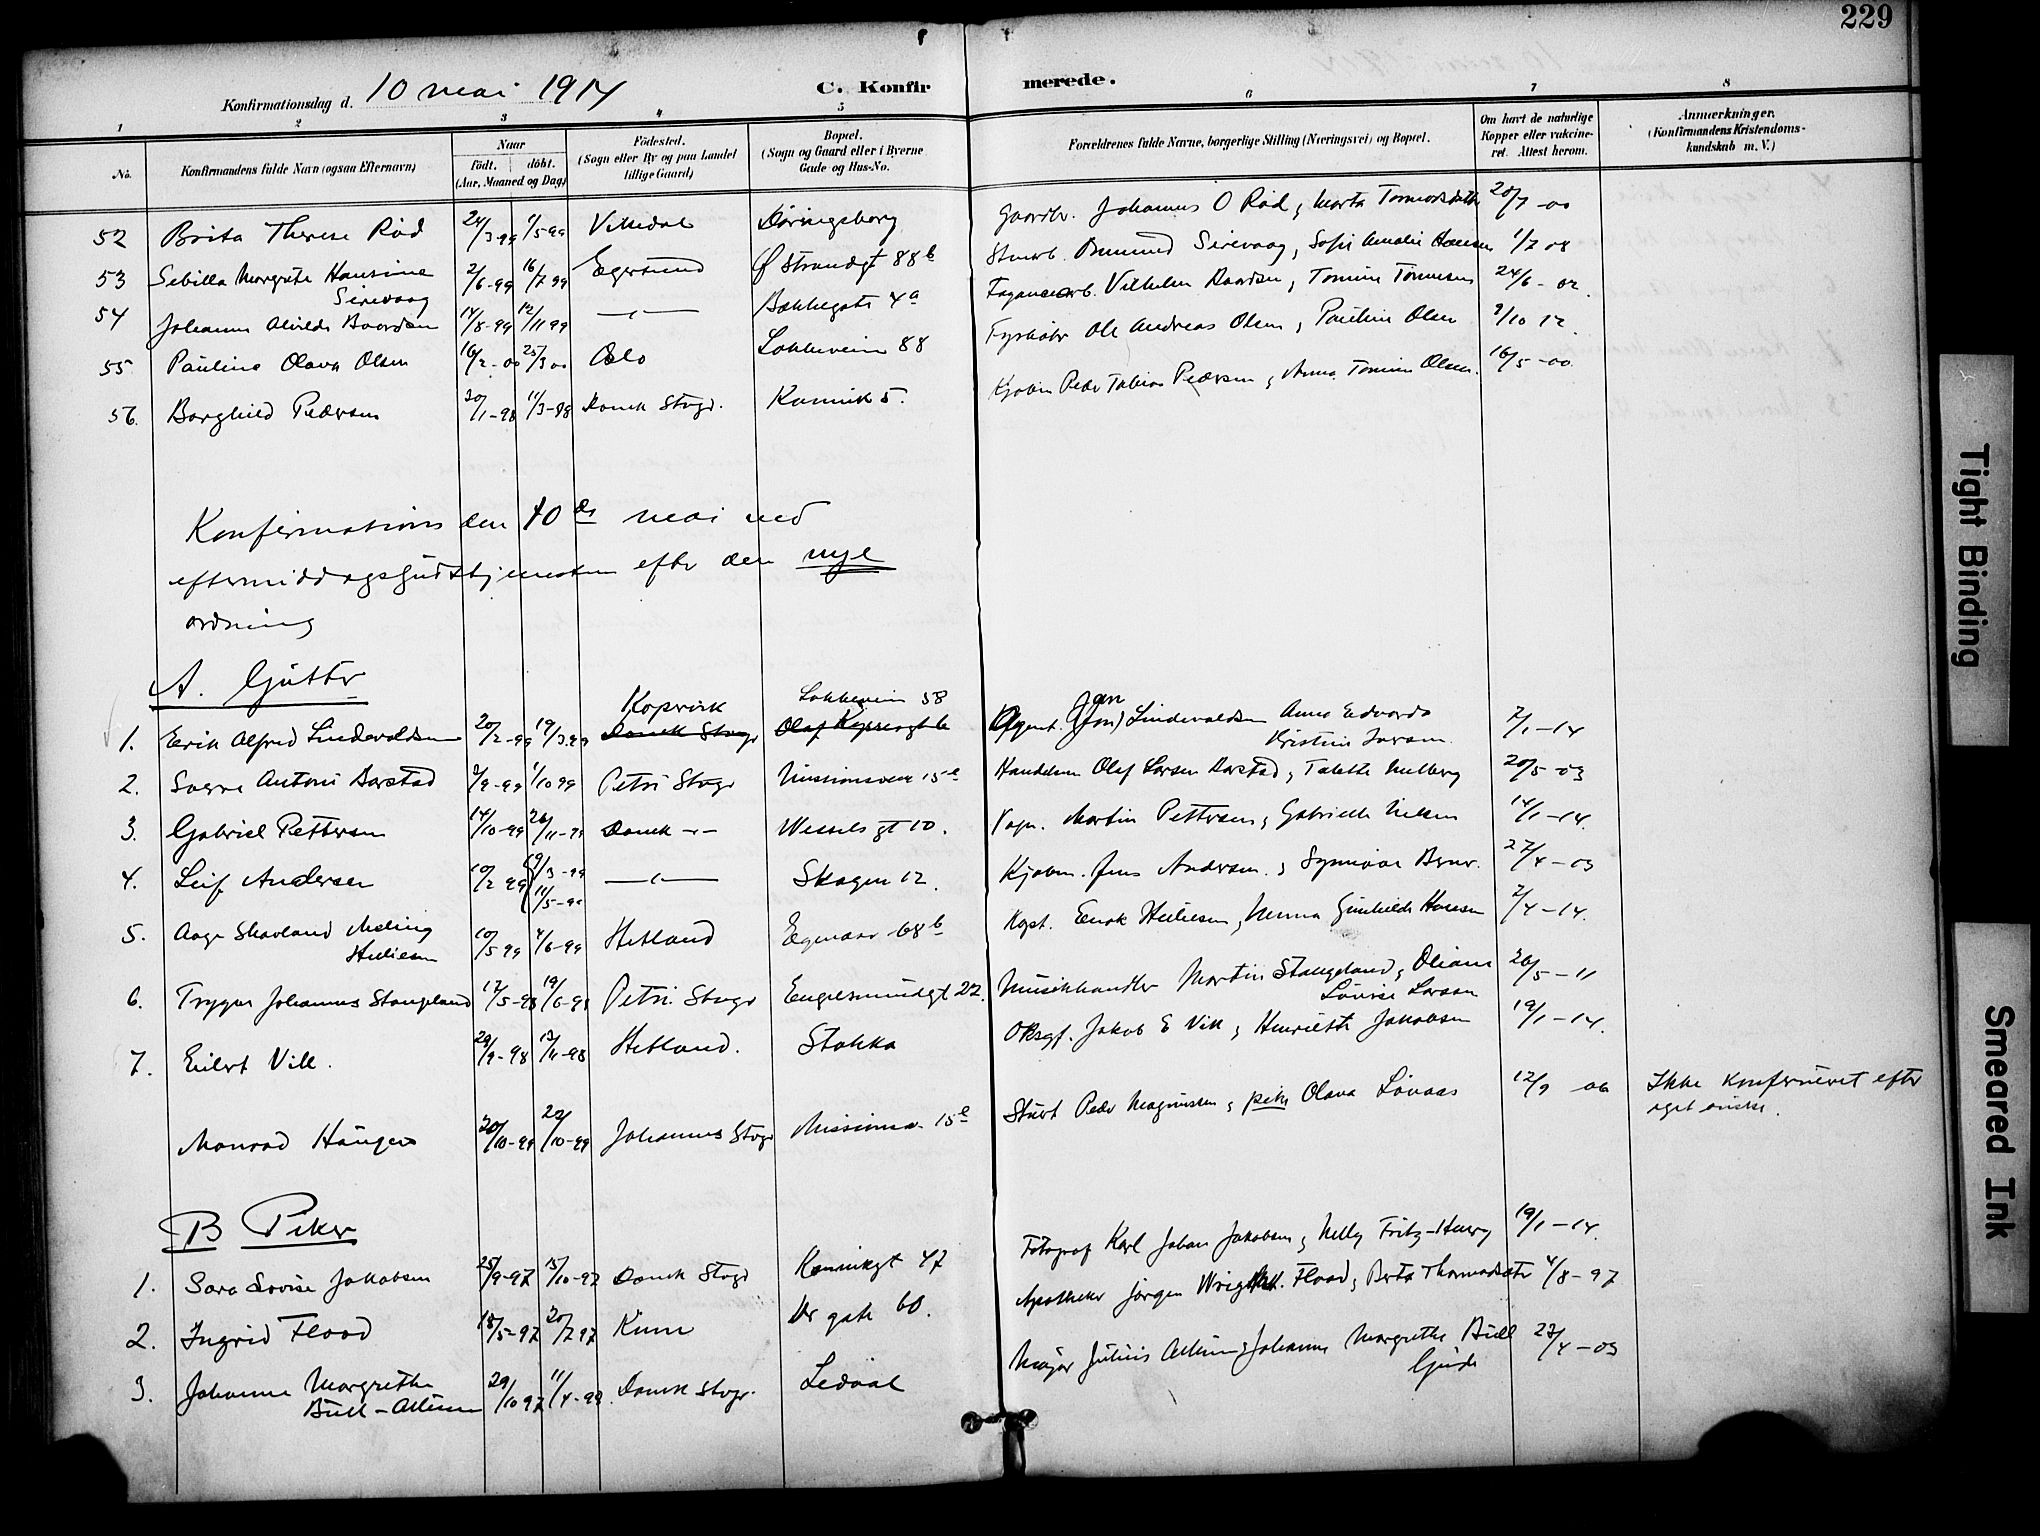 229
Konfirmationsdag d. 10 mai 1914
C. Konfirmerede.
1 2 3 4 5 6 7 8
No.
Konfirmandens fulde Navn (ogsaa Efternavn)
Naar
født. døbt.
(Aar, Maaned og Dag)
Fødested.
(Sogn eller By og paa Landet
tillige Gaard)
Bopæl.
(Sogn og Gaard eller i Byerne
Gade og Hus-No.
Forældrenes fulde Navne, borgerlige Stilling (Næringsvei) og Bopæl.
Om havt de naturlige
Kopper eller vakcine-
ret. Attest herom.
Anmærkninger.
(Konfirmandens Kristendoms-
kundskab m. V.)
52 Brita Therese Rød 24/3-99 1/5 99 Vikedal Døringsborg Gaardbr. Johannes O Rød, Marta Tormodsdatter 20/7-00
53 Sebilla Margrete Hansine Sirevaag 2/6-99 16/7 99 Egersund Ø Strandgt 88b Sirevaag, Sofie Amalie Hansen 1/7 08
54 Johanne Alvilde Baardsen 14/8-99 12/11 99 —"— Bakkegata 4a Vilhelm Baardsen, Tomine Tønnesen 24/6-02
55 Pauline Olava Olsen 16/2-00 25/3 00 Oslo Løkkeveien 88 Fyrbøter Ole Andreas Olsen, Pauline Olsen 9/10 12
56. Borghild Pedersen 20/1-98 11/3-98 Domk Stvgr. Kannik 5. Kjøbm Peder Tobias Pedersen, Anna Tomine Olsen 16/5-00
Konfirmations den 10de mai ved
eftermiddagsgudstjenesten efter den nye
ordning
A. Gutter
1. Erik Alfred Lindevaldsen 20/2-99 19/3 99 Kopervik Domk Stvgr Løkkeveien 58 Agent. Jan (Jon) Lindevaldsen Anna Edvarda Kristine 7/1-14
2. Sverre Antoni Barstad 2/9-99 1/10 99 Petri Stvgr Missionsvei 15e Handelsm Olaf Larsen Barstad, Talette Melberg 20/5-03
3. Gabriel Pettersen 14/10-99 26/11-99 Domk -"- Wessels gt 10. Martin Pettersen, Gabrielle Nielsen 14/1-14.
4. Leif Andersen 10/2 99 19/3-99 11/5-99 —"— Skagen 12. Kjøbm. Jens Andersen, Synnøve 27/4-03
5. Aage Skavland Meling Heliesen 10/5 99 4/6-99 Hetland Egenaes 68b Kapt. Enok Heliesen, Gunhilde Hansen 7/4-14.
6. Trygve Johannes Stangeland 17/5-98 19/6-98 Petri Stvgr Engelsmindegt 22. Musikhandler Martin Stangeland, Oliane Lovise Larsen 20/5-11
7. Eilert Vik. 29/9-98 13/11-98 Hetland. Stokka Jakob E Vik, Henriette Jakobsen 19/1-14.
Monrad Haugen 20/10-99 29/10-99 Johannes Stvgr Missionsv. 15e Peder Magnussen, pike Olava Løvaas 12/9-06 Ikke konfirmeret efter
eget ønske.
B Piker
1. Sara Lovise Jakobsen 25/9-97 15/10-97 Domk Stvgr Kannikgt 47 Fotograf Karl Johan Jakobsen, Nelly Fritz-Henry 19/1-14.
2. Ingrid Flood 18/5-97 20/7 97 Kinn Ør gate 60. Apotheker Jørgen Flood, Berta 4/8-97
3. Johanne Margrethe Bull-Aklum 29/10 97 11/4-99 Domk Stvgr. Ledaal Major Julius Johanne Margrethe Bull Gjerde 27/4-03
Tight Binding
Smeared Ink